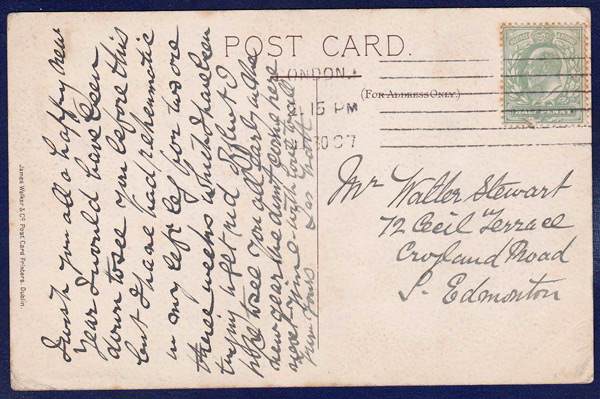 POST CARD.
(FOR ADDRESS ONLY.)
LONDON
15 PM
30 07
HALF PENNY
Mr Walter Stewart
72 Cecil Terrace
Croyland Road
S. Edmonton
I wish you all a happy New
Year I would have been
down to see you before this
but I have had rheumatic
in my left leg for two ore
three weeks which I have been
trying to get rid of but I
hope to see you all early in the
new year the dont come here
next time with love to all
from yours
James Walker & Co Post Card Printers, Dublin.